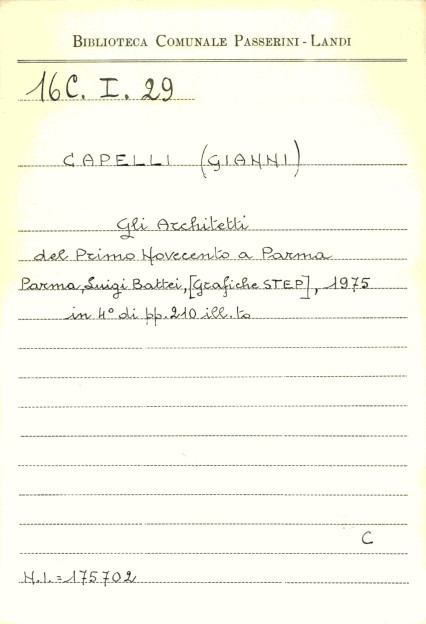 BIBLIOTECA COMUNALE PASSERINI - LANDI
16C. I. 29
CAPELLI (GIANNI)
Gli Architetti
del Primo Novecento a Parma
Parma, Luigi Battei, [Grafiche STEP], 1975
in 4° di pp. 210 ill.to
C
N.I. = 175702